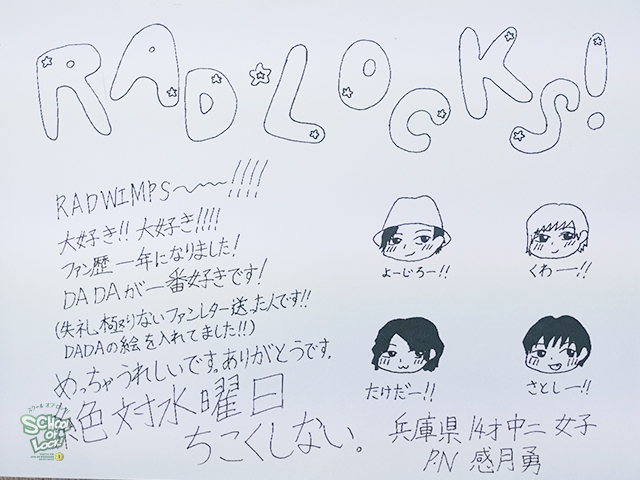 RAD LOCKS!
RADWIMPS〜!!!!
大好き!! 大好き!!!!
ファン歴一年になりました!
DADAが一番好きです!
(失礼極りないファンレター送った人です!!
DADAの絵を入れてました!!)
めっちゃうれしいです。ありがとうです。
色対水曜日
ちこくしない。
よーじろー!!
くわー!!
たけだー!!
さとしー!!
兵庫県 14才 中二 女子
P.N 感月勇
スクール オブ ロック
SCHOOL OF LOCK!